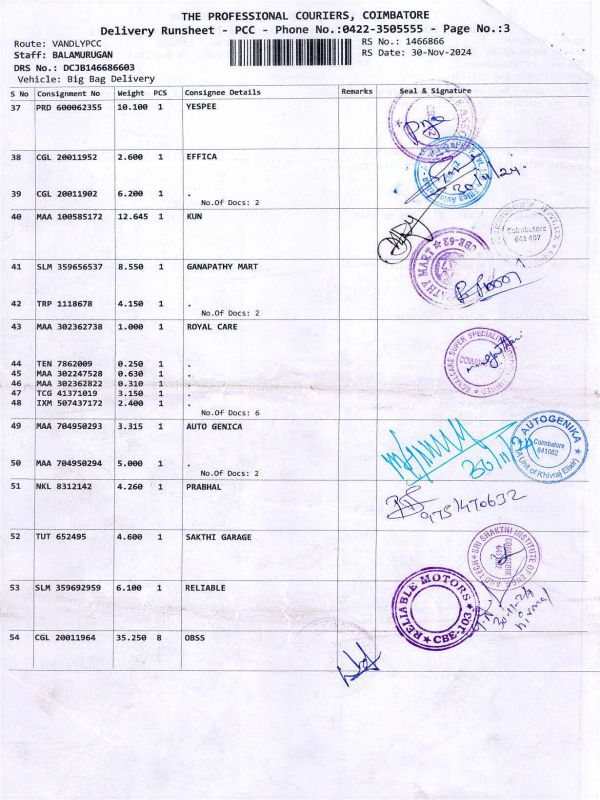 THE PROFESSIONAL COURIERS, COIMBATORE
Delivery Runsheet - PCC - Phone No.:0422-3505555 - Page No.:3
Route: VANDLYPCC
RS No.: 1466866
Staff: BALAMURUGAN
RS Date: 30-Nov-2024
DRS No.: DCJB146686603
Vehicle: Big Bag Delivery
S No Consignment No Weight PCS Consignee Details Remarks Seal & Signature
37 PRD 600062355 10.100 1 YESPEE
38 CGL 20011952 2.600 1 EFFICA
39 CGL 20011902 6.200 1 .
No.Of Docs: 2
40 MAA 100585172 12.645 1 KUN
Coimbatore
641 407
41 SLM 359656537 8.550 1 GANAPATHY MART
CBE-62
42 TRP 1118678 4.150 1 .
No.Of Docs: 2
43 MAA 302362738 1.000 1 ROYAL CARE
44 TEN 7862009 0.250 1 .
45 MAA 302247528 0.630 1 .
46 MAA 302362822 0.310 1 .
47 TCG 41371019 3.150 1 .
48 IXM 507437172 2.400 1 .
No.Of Docs: 6
49 MAA 704950293 3.315 1 AUTO GENICA
AUTOGENIKA
Coimbatore
641062
(A Unit of Khivraj Elixir)
50 MAA 704950294 5.000 1 .
No.Of Docs: 2
51 NKL 8312142 4.260 1 PRABHAL
9751470632
52 TUT 652495 4.600 1 SAKTHI GARAGE
SRI SHAKTHI INSTITUTE OF ENGG AND TECH
53 SLM 359692959 6.100 1 RELIABLE
RELIABLE MOTORS
CBE-103
54 CGL 20011964 35.250 8 OBSS